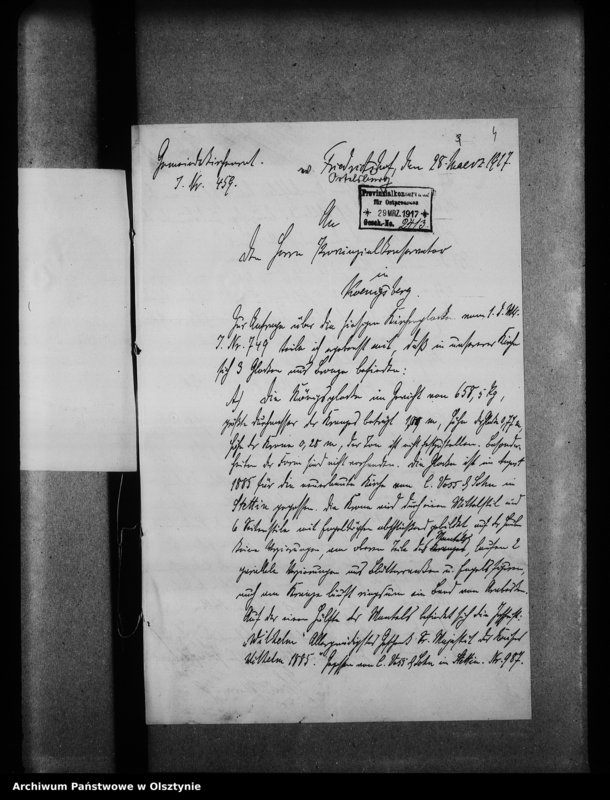 4
Gemeindekirchenrat.
J. Nr. 459.
Friedrichshof, den 28. Maerz 1917
Ortelsburg
Provinzialkonservator
für Ostpreussen
29 MRZ. 1917
Gesch.-No. 2413
An
den Herrn Provinzialkonservator
in
Koenigsberg.
Zur Anfrage über die hiesigen Kirchenglocken vom 1. d. Mts.
J. Nr. 749 teile ich ergebenst mit, daß in unserer Kirche
sich 3 Glocken aus Bronze befinden:
A) Die Königsglocke im Gewicht von 658,5 kg,
größte Durchmesser des Kranzes beträgt m, Höhe 0,77 m,
Höhe der Krone 0,25 m, der Ton ist nicht festzustellen. Besonder-
heiten der Form sind nicht vorhanden. Die Glocke ist im
1895 für die neuerbaute Kirche von C. Voss & Sohn in
Stettin gegossen. Die Krone wird durch einen Mittelstiel und
6 Seitenstiele mit Engelsköpfen gebildet
keine Verzierungen am oberen Teile des Mantels laufen 2
parallele Verzierungen aus Blätterranken u. Engelsfiguren,
auch am Kranze läuft ringsum ein Band von
Auf der einen Hälfte des Mantels befindet sich die Inschrift:
"Wilhelm" Allergnädigstes Geschenk Sr. Majestät des Kaisers
Wilhelm 1895." Gegossen von C. Voss & Sohn in Stettin. Nr. 987.
Archiwum Państwowe w Olsztynie